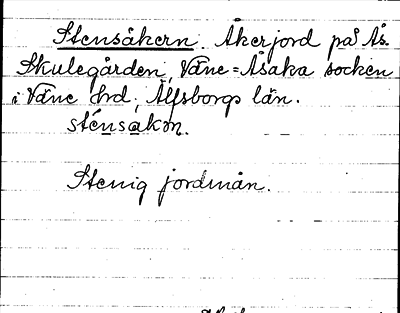 Stensåkern. Åkerjord på Ås.
Skulegården, Väne=Åsaka socken
i Väne hrd, Älfsborgs län.
sténsakon.
Stenig jordmån.